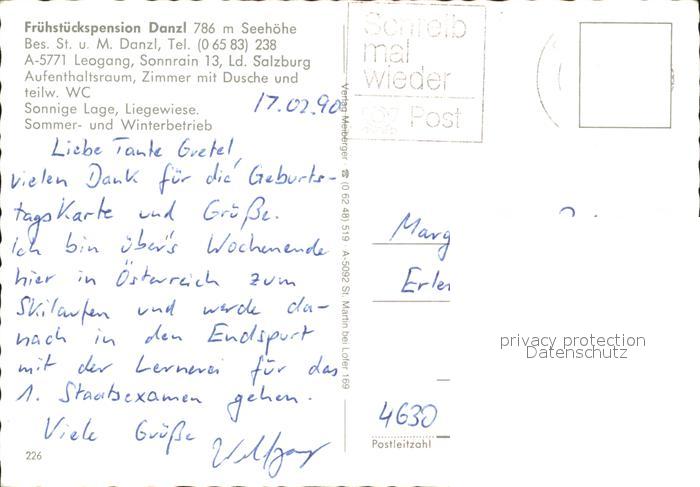 Frühstückspension Danzl 786 m Seehöhe
Bes. St. u. M. Danzl, Tel. (0 65 83) 238
A-5771 Leogang, Sonnrain 13, Ld. Salzburg
Aufenthaltsraum, Zimmer mit Dusche und
teilw. WC
Sonnige Lage, Liegewiese.
Sommer- und Winterbetrieb
17.02.90
Liebe Tante Gretel,
vielen Dank für die Geburts-
tagsKarte und Grüße.
Ich bin über's Wochenende
hier in Österreich zum
Skilaufen und werde da-
nach in den Endspurt
mit der Lernerei für das
1. Staatsexamen gehen.
Viele Grüße
226
Verlag Meiberger ☎ (0 62 48) 519 A-5092 St. Martin bei Lofer 169
Schreib
mal
wieder
Post
Marg
Erlen
4630
Postleitzahl
privacy protection
Datenschutz